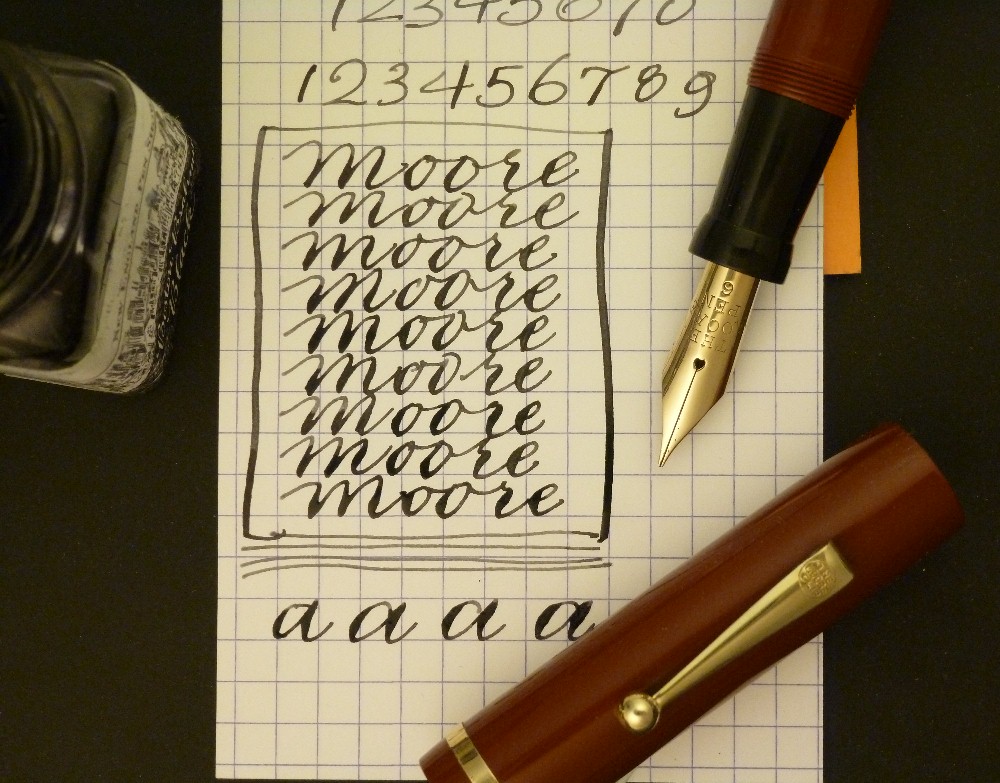 1234567
123456789
Moore
Moore
Moore
Moore
Moore
Moore
Moore
Moore
Moore
a a a a